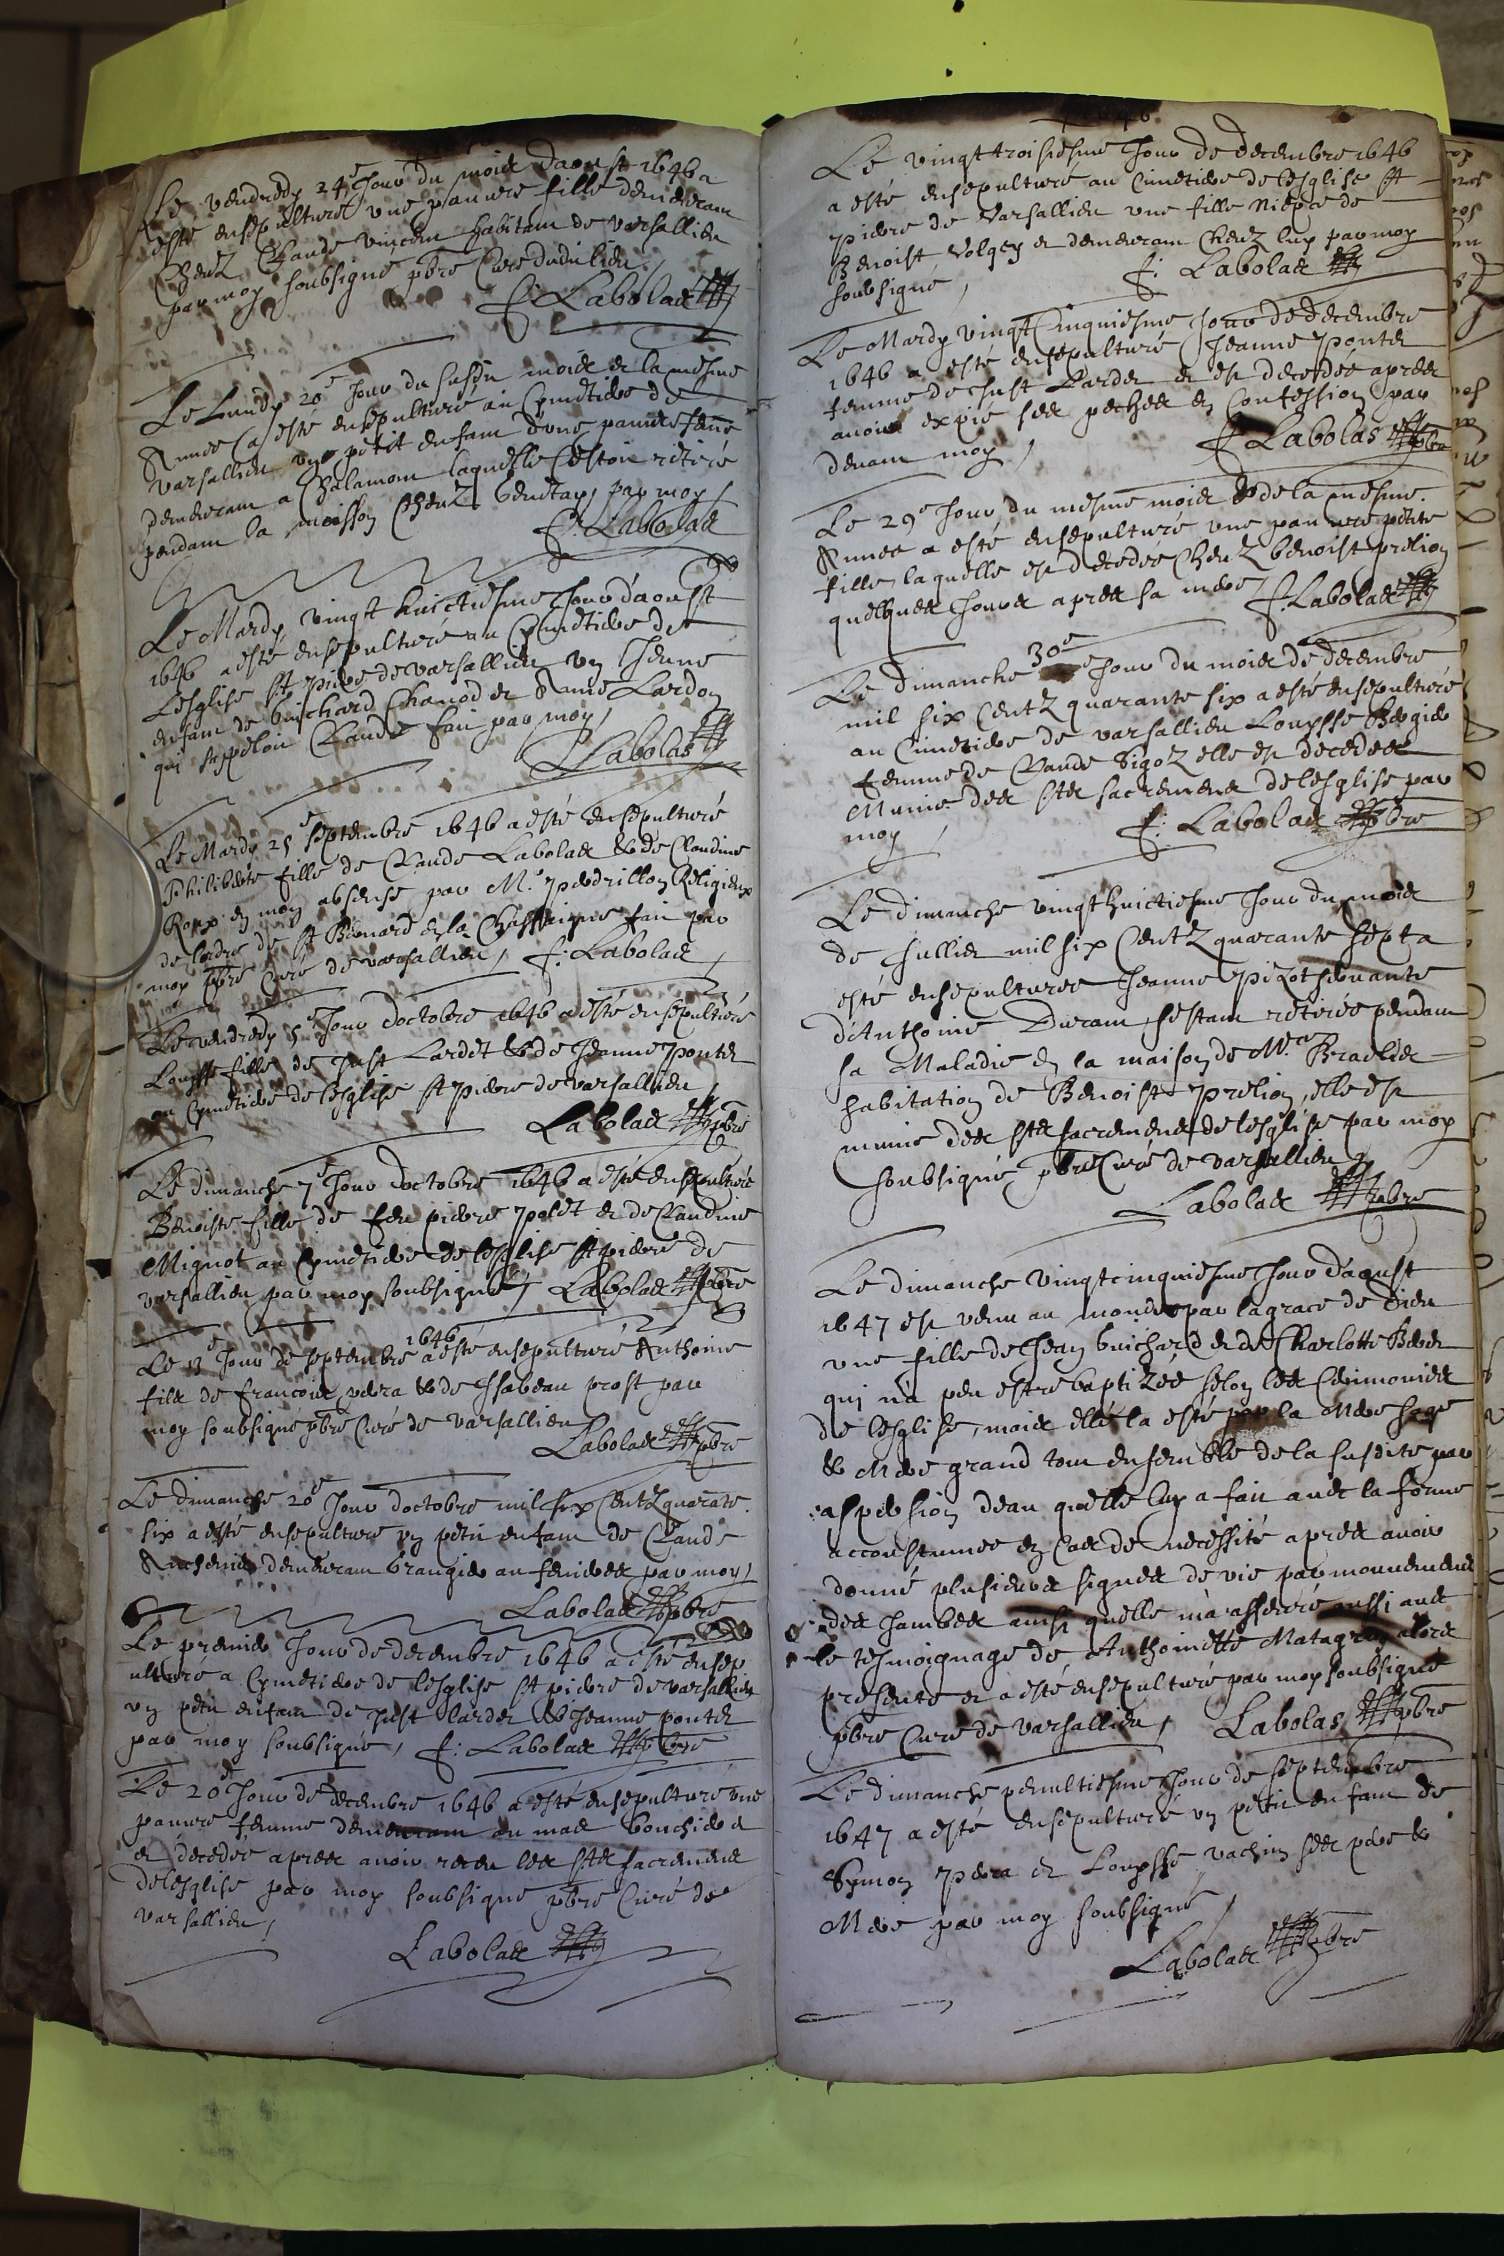 Le vendredy 24e Jour du mois daoust 1646 a
esté ensepulturé une pauvre fille demeurant
Chenz Claude vincent habitant de varsallieu
par moy soubsigné pbre Curé dudit lieu,
f: Labolas
Le Lundy 20e Jour du susdit mois et la mesme
Année a esté ensepulturé au Cymetiere de
varsallieu un petit enfant d'une pauvre feme
demeurant a Chalamont laquelle sestoit retiré
pendant la moisson Chenz par moy,
f. Labolas
Le Mardy vingt huictiesme Jour d'aoust
1646 a esté ensepulturé au Cymetiere de
Lesglise St piere de varsallieu un Jeune
enfant de buichard Chanod et Anne Lardon
qui sappeloit Claude fait par moy,
Labolas
Le Mardy 25e septembre 1646 a esté ensepulturé
Philiberte fille de Claude Labolas & de Claudine
Roux en mon absense par Mr. pedrillon Religieux
de lordre de St Bernard de la Chassaigne fait par
moy pbre Curé de varsallieu, f: Labolas
Le vendredy 5e Jour doctobre 1646 a esté ensepulturé
Louysse fille de Just Lardet & de Jeanne pontet
au Cymetiere de lesglise St piere de varsallieu,
Labolas pbre
Le dimanche 7e Jour doctobre 1646 a esté ensepulturé
Benoiste fille de feu piere polet et de Claudine
Mignot au Cymetiere de lesglise St piere de
varsallieu par moy soubsigné, Labolas pbre
1646
Le 13e Jour de septembre a esté ensepulturé Anthoine
fils de francois pera & de Isabeau prost par
moy soubsigné pbre Curé de varsallieu
Labolas pbre
Le dimanche 20e Jour doctobre mil six Centz quarate
six a esté ensepulturé un petit enfant de Claude
demeurant par moy,
Labolas pbre
Le premier Jour de decembre 1646 a esté ensep
ulturé a Cymetiere de lesglise St piere de varsallieu
un petit enfant de Just lardet & Jeanne pontet
par moy soubsigné, f: Labolas pbre
Le 20e Jour de decembre 1646 a esté ensepulturé une
pauvre femme demeurant au mas bouchier
et decedée apres avoir receu les Sts sacrements
de lesglise par moy soubsigné pbre Curé de
varsallieu,
Labolas
Le vingttroisiesme Jour de decembre 1646
a esté ensepulturé au Cimetiere de lesglise St
piere de varsallieu une fille niepce de
Benoist volgey et demeurant Chenz luy par moy
soubsigné, f: Labolas
Le Mardy vingt Cinquiesme Jour de decembre
1646 a esté ensepulturé Jeanne pontet
femme de Just Lardet et est decedée apres
avoir expié ses peches en Confession par
devant moy, f Labolas pbre
Le 29e Jour du mesme mois & de la mesme
Annee a esté ensepulturé une pauvre petite
fille laquelle est decedee Chenz benoist prelion
quelques Jours apres sa mere, f. Labolas
30e
Le dimanche Jour du mois de decembre
mil six Centz quarante six a esté ensepulturé
au Cimetiere de varsallieu Louysse Bergier
femme de Claude Sigoz elle est decedée
Munie des Sts sacrements de lesglise par
moy, f: Labolas pbre
Le dimanche vingthuictiesme Jour du mois
de Jullier mil six Centz quarante sept a
esté ensepulturee Jeanne pizot servante
d'Anthoine Durant, sestant retirée pendant
sa Maladie en la maison de Braelier
habitation de Benoist prelion, elle est
munie des Sts sacrements de lesglise par moy
soubsigné pbre Curé de varsallieu,
Labolas pbre
Le dimanche vingtcinquiesme Jour d'aoust
1647 est venu au monde par la grace de Dieu
une fille de Jean buichard et de Charlotte Beder
qui n'a peu estre baptizée selon les Ceremonies
de lesglise, mais elle la esté par la Mere sage
& Mere grand tout ensemble de la susdite par
aspersion deau quelle luy a fait avec la forme
accoustumee en Cas de necessité apres avoir
donné plusieurs signes de vie par mouvement
des Jambes ainsi quelle m'a asseuré aussi avec
le tesmoignage de Anthoinette Matagrin alors
presente et a esté ensepulturé par moy soubsigné
pbre Curé de varsallieu, Labolas pbre
Le dimanche penultiesme Jour de septembre
1647 a esté ensepulturé un petit enfant de
Symon pera et Louysse vachin ses pere &
Mere par moy soubsigné,
Labolas pbre